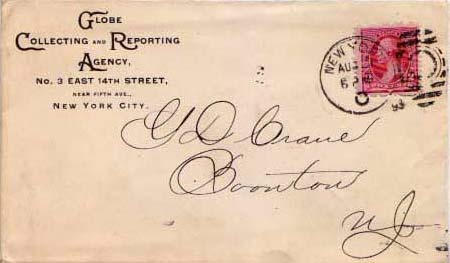 GLOBE
COLLECTING AND REPORTING
AGENCY,
NO. 3 EAST 14TH STREET,
NEAR FIFTH AVE.,
NEW YORK CITY.
NEW
AU
6 P
93
G D Crane
Boonton
NJ